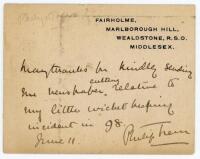 FAIRHOLME,
MARLBOROUGH HILL,
WEALDSTONE, R.S.O.
MIDDLESEX.
Many thanks for kindly sending
cutting
me newspaper relative to
my little wicket keeping
incident in 98.
June 11.